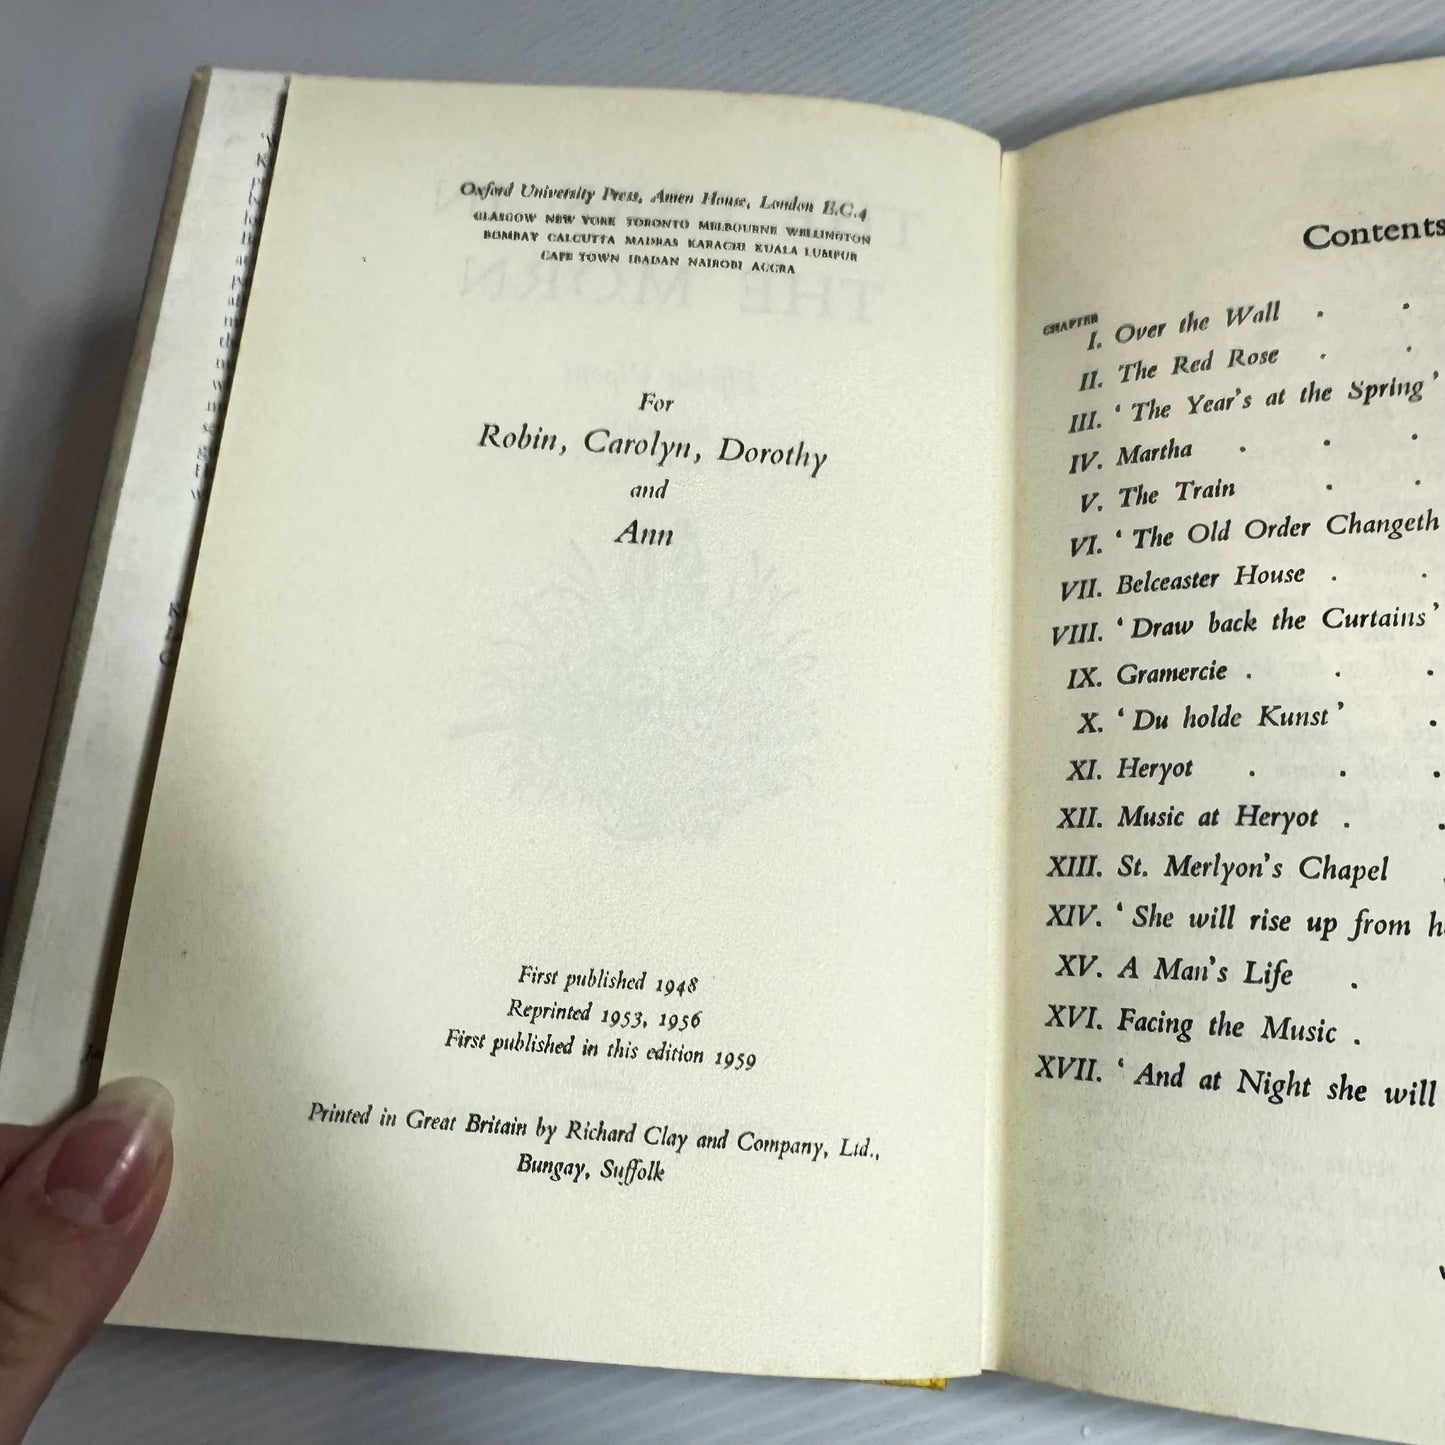 Oxford University Press, Amen House, London E.C.4
GLASGOW NEW YORK TORONTO MELBOURNE WELLINGTON
BOMBAY CALCUTTA MADRAS KARACHI KUALA LUMPUR
CAPE TOWN IBADAN NAIROBI ACCRA
For
Robin, Carolyn, Dorothy
and
Ann
First published 1948
Reprinted 1953, 1956
First published in this edition 1959
Printed in Great Britain by Richard Clay and Company, Ltd.,
Bungay, Suffolk
Contents
CHAPTER
I. Over the Wall . .
II. The Red Rose . .
III. ‘ The Year’s at the Spring ’
IV. Martha . . .
V. The Train . .
VI. ‘ The Old Order Changeth
VII. Belceaster House . .
VIII. ‘ Draw back the Curtains ’
IX. Gramercie . . .
X. ‘ Du holde Kunst ’ .
XI. Heryot . . .
XII. Music at Heryot . .
XIII. St. Merlyon’s Chapel .
XIV. ‘ She will rise up from
XV. A Man’s Life .
XVI. Facing the Music .
XVII. ‘ And at Night she will